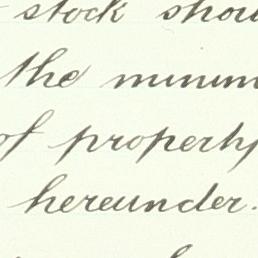 stock shou
the minim
of property
hereunder.